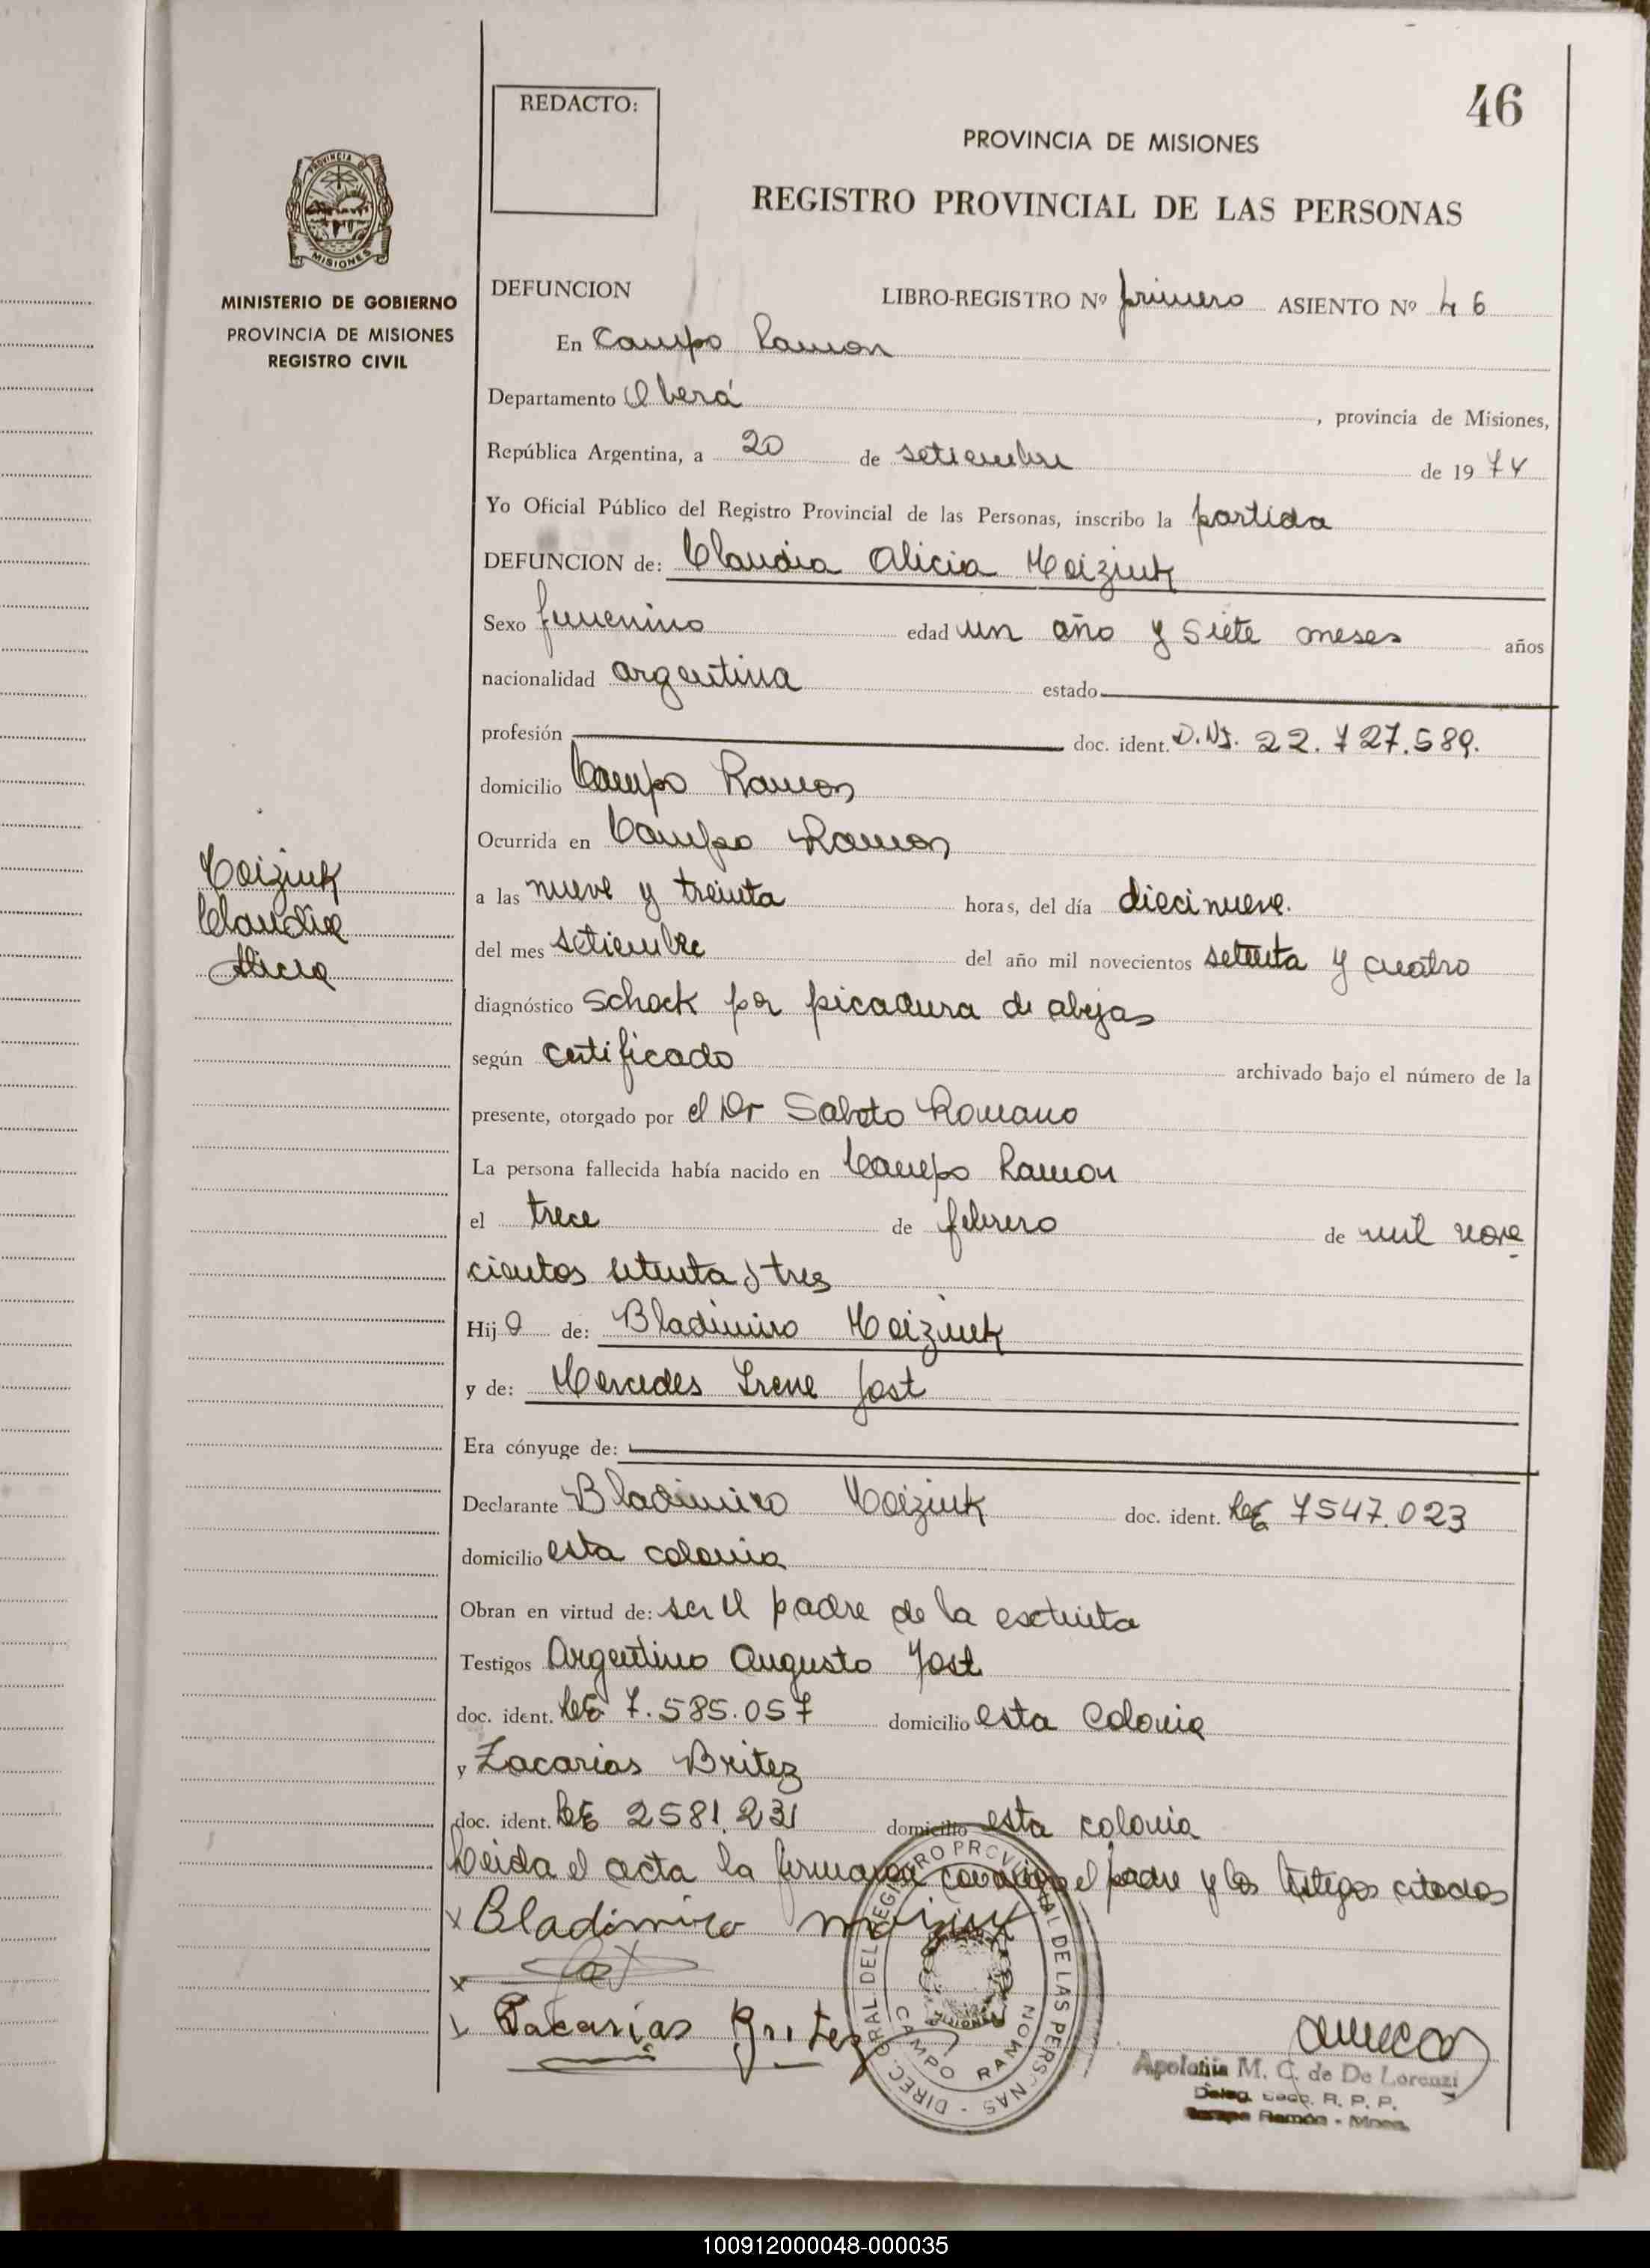 46
REDACTO:
PROVINCIA DE MISIONES
REGISTRO PROVINCIAL DE LAS PERSONAS
PROVINCIA DE
MISIONES
MINISTERIO DE GOBIERNO
PROVINCIA DE MISIONES
REGISTRO CIVIL
DEFUNCION LIBRO-REGISTRO Nº primero ASIENTO Nº 46
En Campo Ramon
Departamento Oberá, provincia de Misiones,
República Argentina, a 20 de setiembre de 1974
Yo Oficial Público del Registro Provincial de las Personas, inscribo la partida
DEFUNCION de: Claudia Alicia Moiziuk
Sexo femenino edad un año y siete meses años
nacionalidad argentina estado
profesión doc. ident. D.N.I. 22.727.589.
domicilio Campo Ramon
Ocurrida en Campo Ramon
Moiziuk
Claudia
Alicia
a las nueve y treinta horas, del día diecinueve.
del mes setiembre del año mil novecientos setenta y cuatro
diagnóstico schock por picadura de abejas
según certificado archivado bajo el número de la
presente, otorgado por el Dr Romano
La persona fallecida había nacido en Campo Ramon
el trece de febrero de mil nove
cientos setenta y tres
Hija de: Bladimiro Moiziuk
y de: Mercedes Irene Jost
Era cónyuge de:
Declarante Bladimiro Moiziuk doc. ident. LE 7547.023
domicilio esta colonia
Obran en virtud de: ser el padre de la extinta
Testigos Argentino Augusto Jost
doc. ident. LE 7.585.057 domicilio esta Colonia
y Zacarias Britez
doc. ident. LE 2581.231 domicilio esta colonia
Leida el acta la firmaron conmigo el padre y los testigos citados
x Bladimiro Moiziuk
x
x Zacarias Britez
DIREC. GRAL. DEL REGISTRO PROVINCIAL DE LAS PERSONAS
CAMPO RAMON
MISIONES
Apolonia M. C. de De Lorenzi
Deleg. R. P. P.
Campo Ramón - Mnes.
100912000048-000035